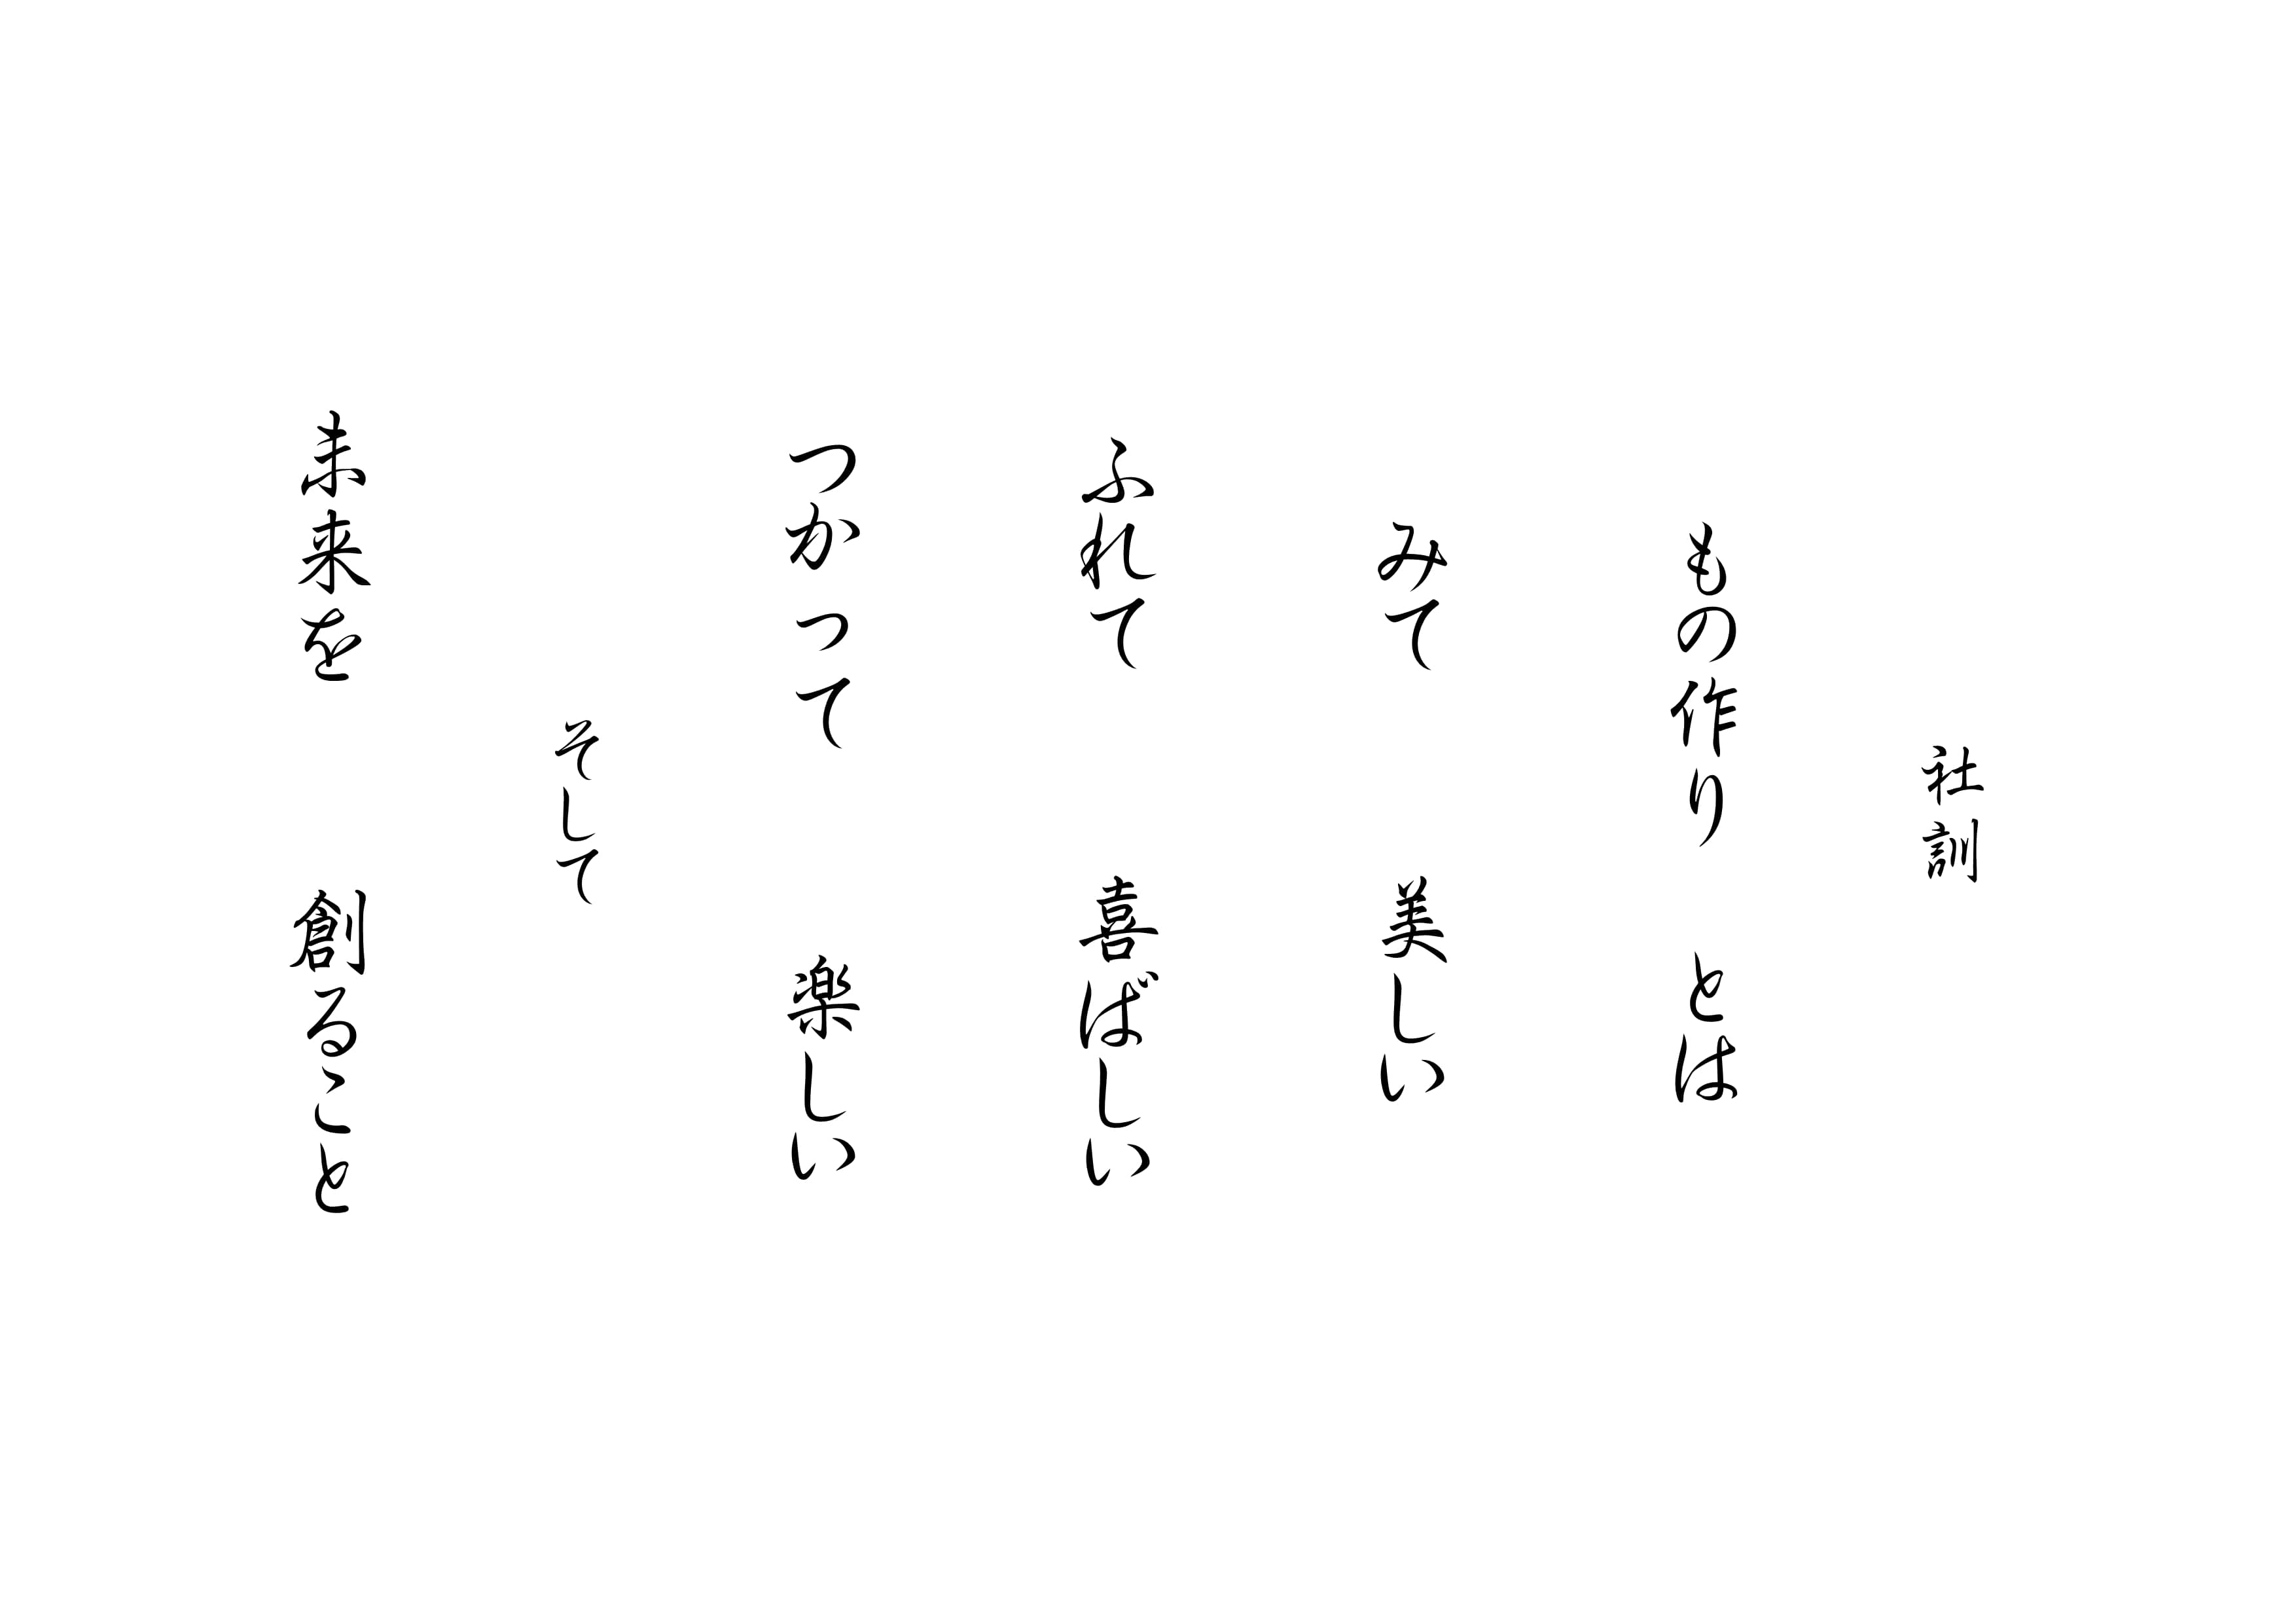 社訓
もの作り　とは
みて　美しい
ふれて　喜ばしい
つかって　楽しい
そして
未来を　創ること